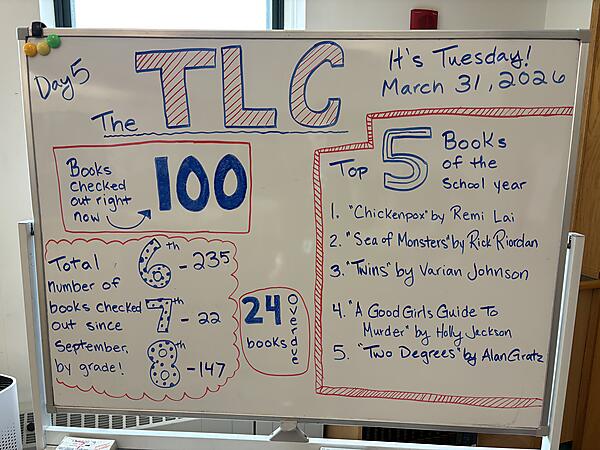 Day 5
The TLC
It's Tuesday!
March 31, 2026
Books
checked
out right
now
100
Total
number of
books checked
out since
September,
by grade!
6th - 235
7th - 22
8th - 147
24
books
Overdue
Top 5 Books
of the
School year
1. "Chickenpox" by Remi Lai
2. "Sea of Monsters" by Rick Riordan
3. "Twins" by Varian Johnson
4. "A Good Girls Guide To
Murder" by Holly Jackson
5. "Two Degrees" by Alan Gratz